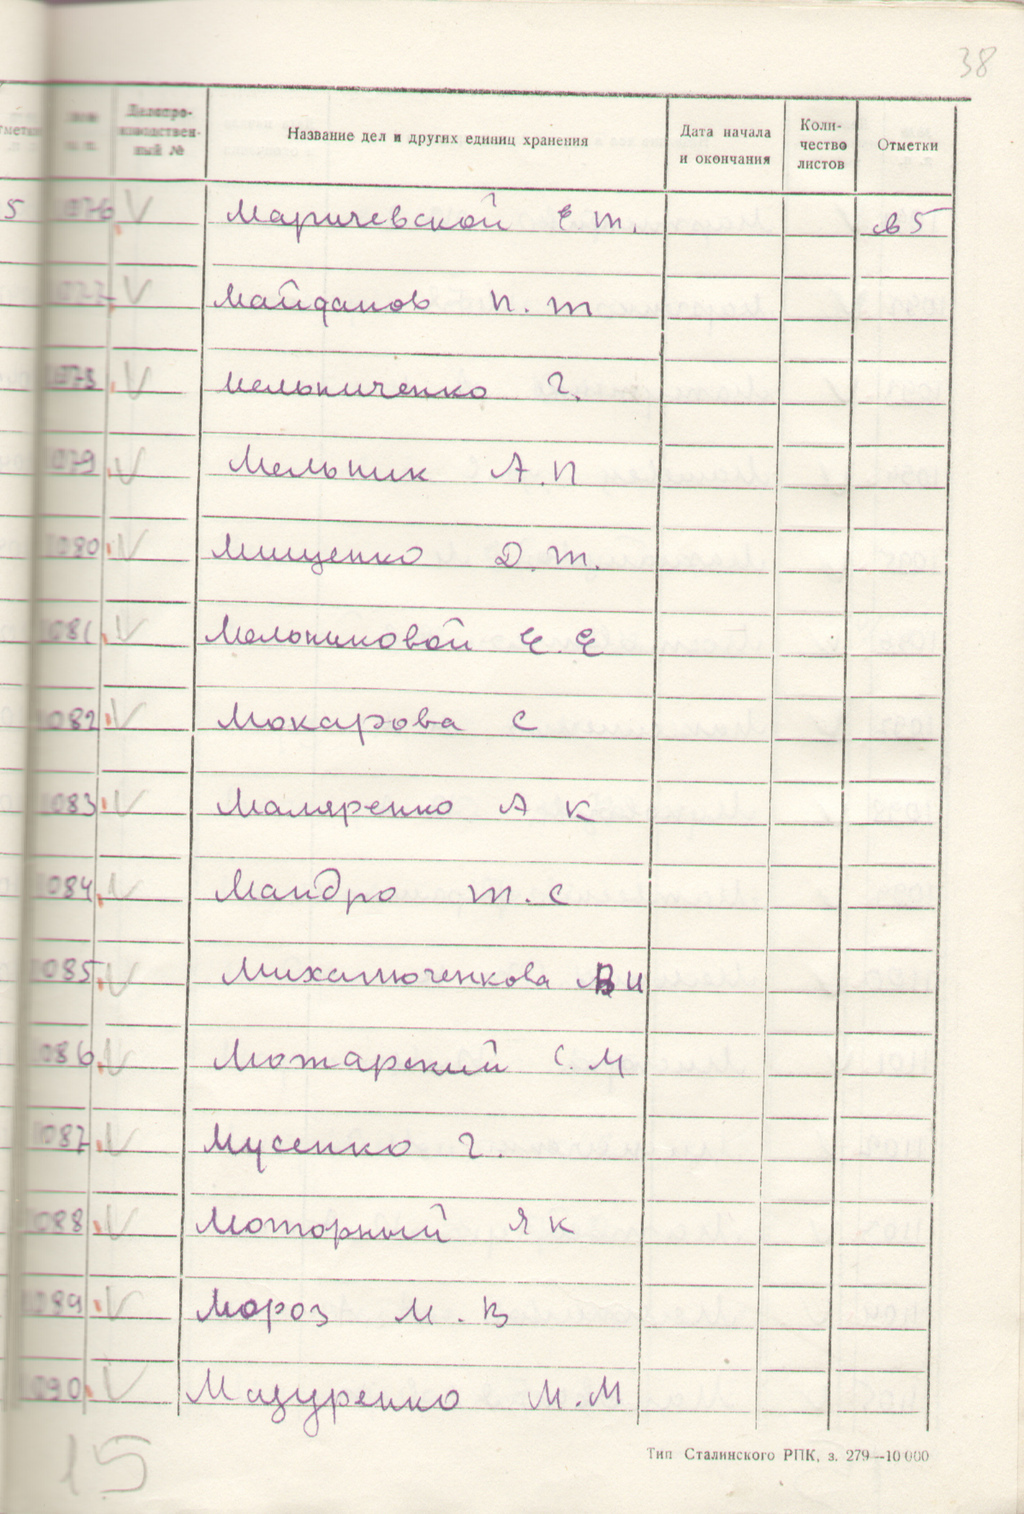 38
Делопро-
изводствен-
ный №
Название дел и других единиц хранения
Дата начала
и окончания
Коли-
чество
листов
Отметки
5 1076 V Маричевской Е Т. в5
1077 V Майданов П. Т
1078 V Мельниченко Г.
1079 V Мельник А. П
1080 V Мищенко Д. Т.
1081 V Мельниковой Е. Е
1082 V Мокарова С
1083 V Маляренко А К
1084 V Мандро Т. С
1085 V Михалюченкова В И
1086 V Мотарский С. М
1087 V Мусенко Г.
1088 V Моторный Я К
1089 V Мороз М. В
1090 V Мазуренко М. М
15
Тип Сталинского РПК, з. 279—10 000